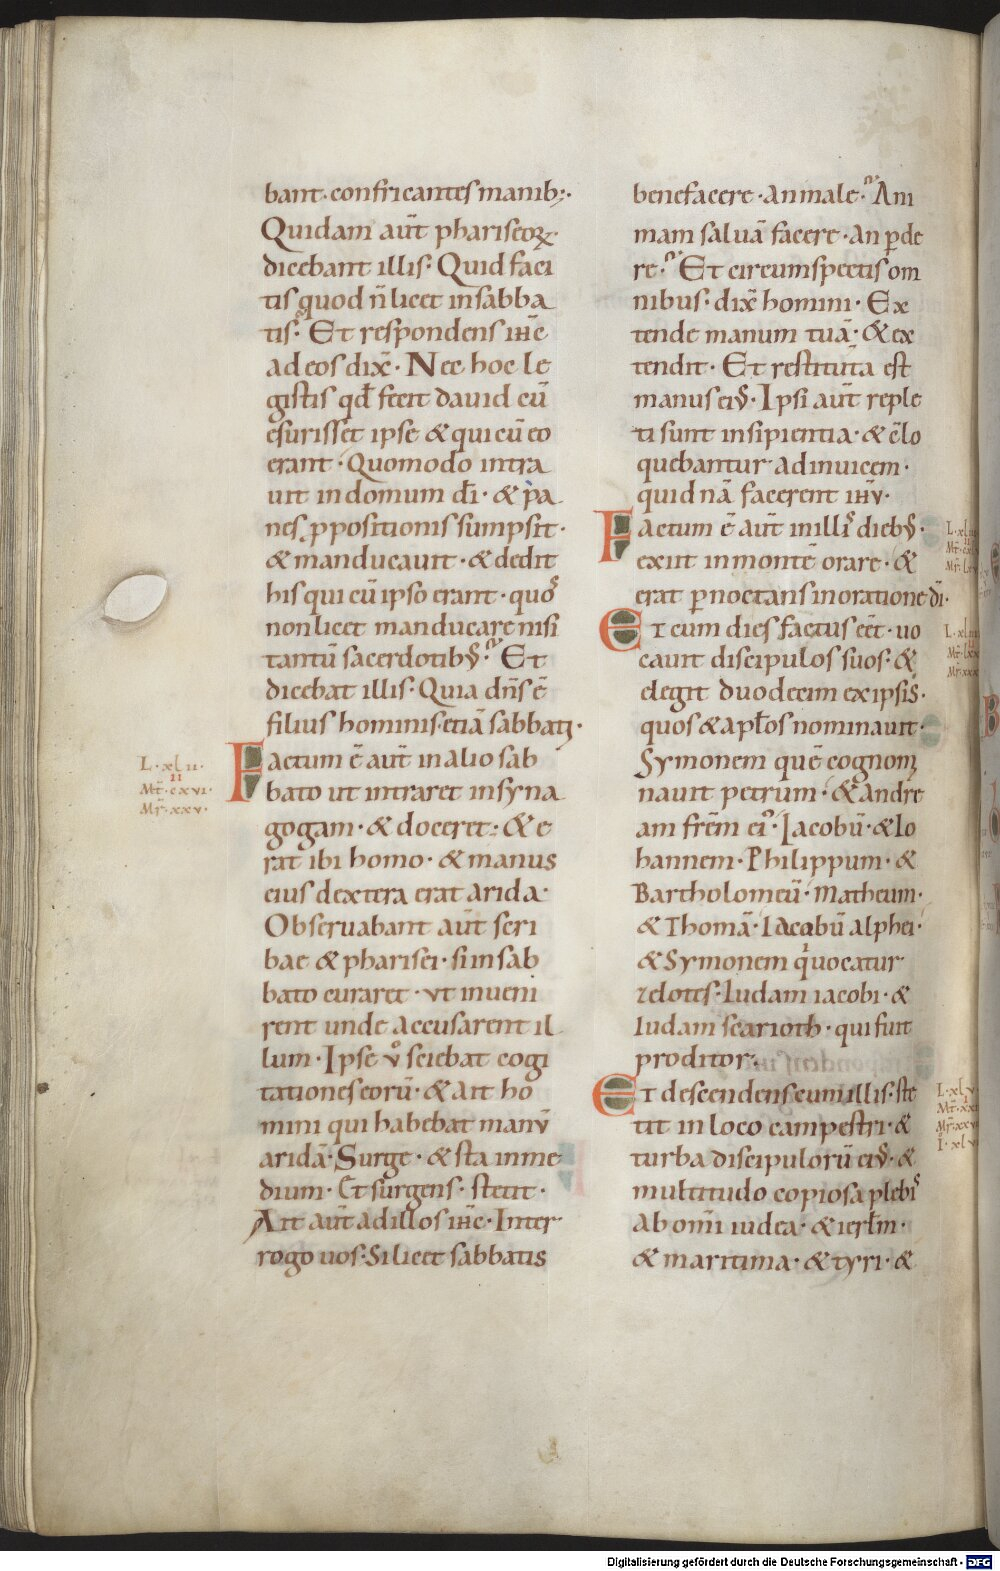 bant· confricantes manib;·
Quidam aut̄ phariseoꝝ·
dicebant illis· Quid faci
tis quod n̄ licet in sabba
tis· Et respondens ih̄c
ad eos dix̄· Nec hoc le
gistis qd̄ fecit david cū
esurisset ipse & qui cū eo
erant· Quomodo intra
uit in domum dī· & pa
nes ꝓpositionis sumpsit·
& manducauit· & dedit
his qui cū ipso erant· quoˢ
non licet manducare nisi
tantū sacerdotibꝰ· Et
dicebat illis· Quia dn̄s ē
filius hominis· etiā sabbati·
L· xl ıı·
ıı
Mt̄· cxvı·
Mr̄· xxv·
Factum ē aut̄ in alio sab
bato ut intraret in syna
gogam· & doceret: & e
rat ibi homo· & manus
eius dextera erat arida·
Obseruabant aut̄ scri
bae & pharisei· si in sab
bato curaret· ut inueni
rent unde accusarent il
lum· Ipse v̊ sciebat cogi
tationes eorū· & ait ho
mini qui habebat manū
aridā· Surge· & sta in me
dium· Et surgens· stetit·
Ait aut̄ ad illos ih̄c· Inter
rogo uos· Si licet sabbatis
benefacere· an male· Ani
mam saluā facere· an ꝑde
re· Et circumspectis om
nibus· dix̄ homini· Ex
tende manum tuā· & ex
tendit· Et restituta est
manus eiꝰ· Ipsi aut̄ reple
ti sunt insipientia· & c̄lo
quebantur ad inuicem·
quid nā facerent ih̄v·
Factum ē aut̄ in illiˢ diebꝰ·
exiit in montē orare· &
erat ꝑnoctans in oratione dī·
Et cum dies factus eēt· uo
cauit discipulos suos· &
elegit duodecim ex ipsis·
quos & apl̄os nominauit·
Symonem quē cognom
nauit petrum· & andre
am fr̄em eiꝰ· Iacobū· & Io
hannem· Philippum· &
Bartholomeū· Matheum·
& Thomā· Iacobū alphei·
& Symonem qͥ uocatur
zelotes· Iudam iacobi· &
Iudam scarioth· qui fuit
proditor·
Et descendens cum illis· ste
tit in loco campestri· &
turba discipulorū eiꝰ· &
multitudo copiosa plebiˢ
ab om̄i iudea· & ierl̄m·
& maritima· & tyri· &
Digitalisierung gefördert durch die Deutsche Forschungsgemeinschaft - DFG